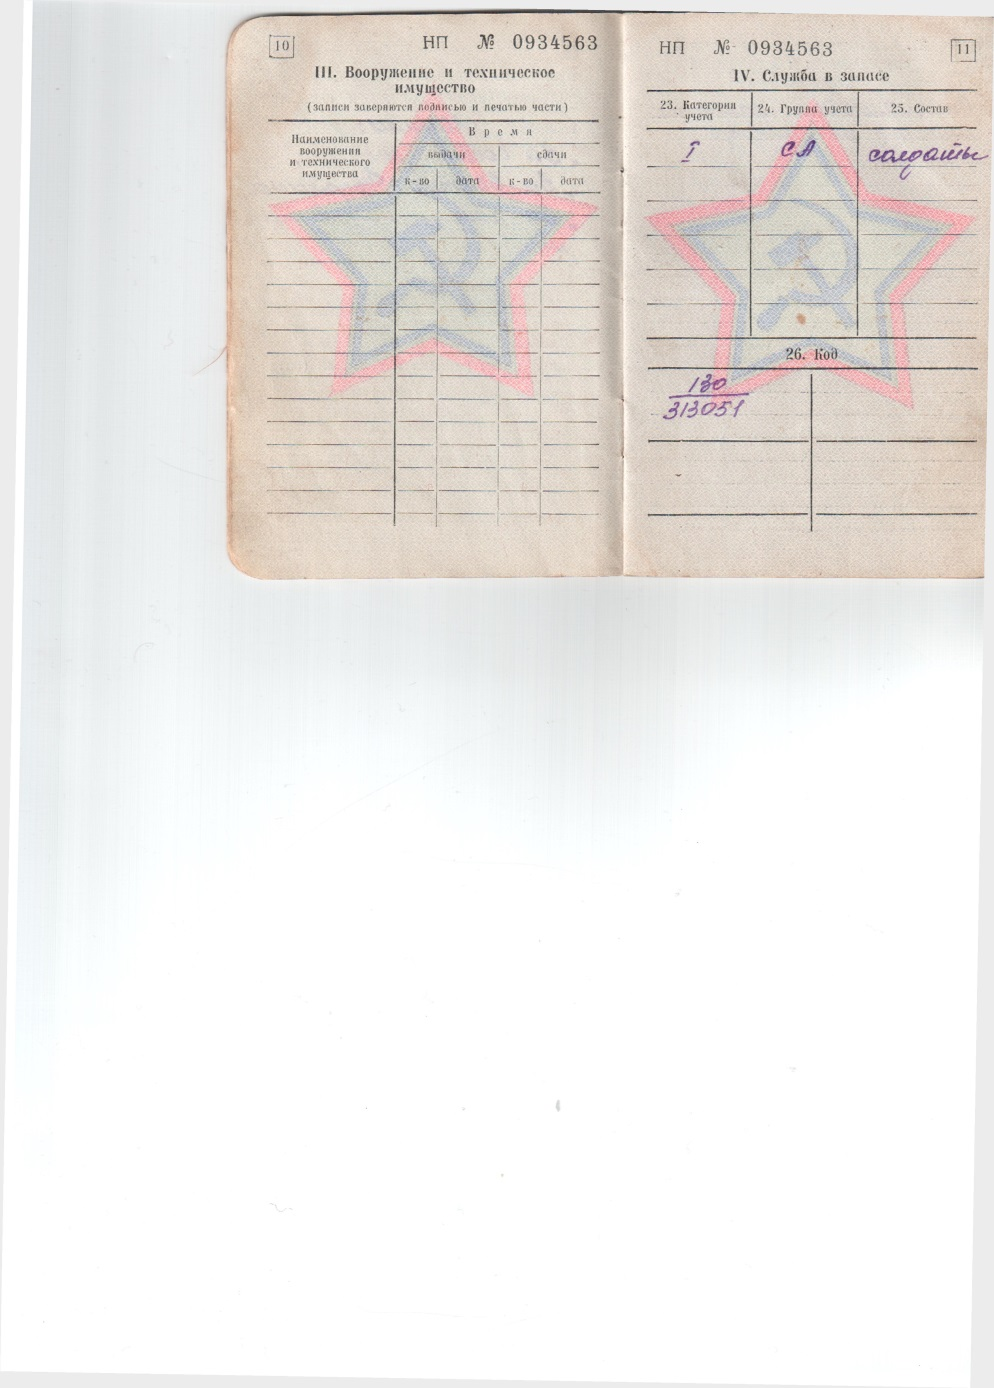 10
НП № 0934563
III. Вооружение и техническое
имущество
(записи заверяются подписью и печатью части)
Наименование
вооружения
и технического
имущества
Время
выдачи
сдачи
к-во
дата
к-во
дата
НП № 0934563
11
IV. Служба в запасе
23. Категория
учета
24. Группа учета
25. Состав
I
СА
солдаты
26. Код
130
313051